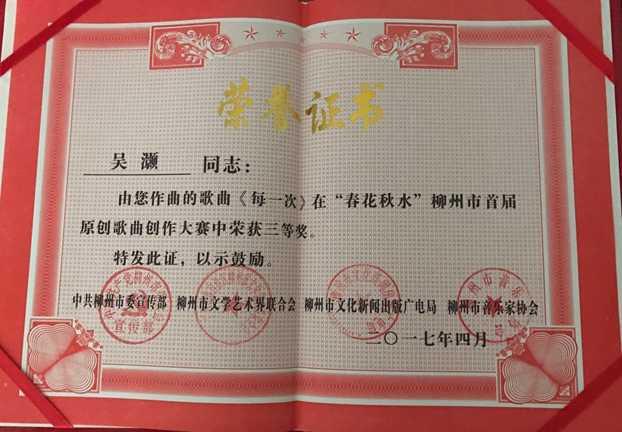 荣誉证书
吴灏 同志：
由您作曲的歌曲《每一次》在“春花秋水”柳州市首届
原创歌曲创作大赛中荣获三等奖。
特发此证，以示鼓励。
中共柳州市委宣传部 柳州市文学艺术界联合会 柳州市文化新闻出版广电局 柳州市音乐家协会
宣传部
二〇一七年四月